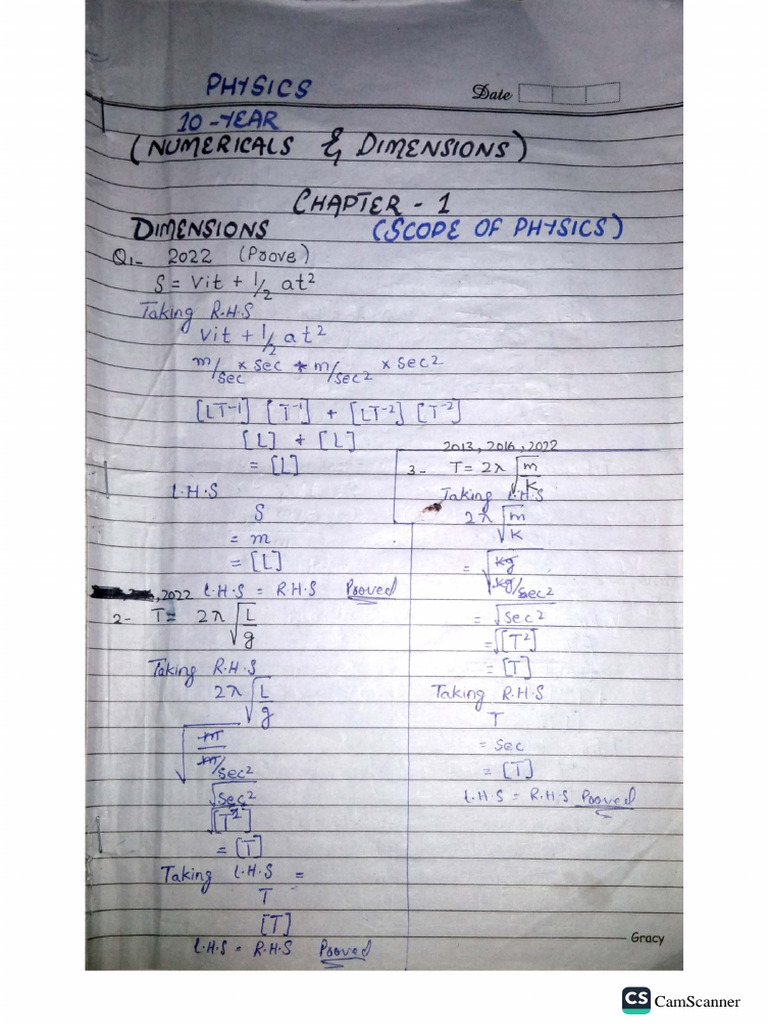 PHYSICS
Date
10-YEAR
(NUMERICALS & DIMENSIONS)
CHAPTER - 1
DIMENSIONS (SCOPE OF PHYSICS)
Q1- 2022 (Prove)
S = Vit + 1/2 at²
Taking R.H.S
Vit + 1/2 at²
m/sec × sec + m/sec² × sec²
[LT⁻¹] [T⁻¹] + [LT⁻²] [T⁻²]
[L] + [L]
= [L]
L.H.S
S
= m
= [L]
L.H.S = R.H.S Proved
,2022
2- T = 2π √L/g
Taking R.H.S
2π √L/g
√m/m/sec²
√sec²
√[T²]
= [T]
Taking L.H.S =
T
[T]
L.H.S = R.H.S Proved
2013, 2016, 2022
3- T = 2π √m/K
Taking L.H.S
2π √m/K
= √kg/kg/sec²
= √sec²
= √[T²]
= [T]
Taking R.H.S
T
= sec
= [T]
L.H.S = R.H.S Proved
Gracy
CS CamScanner